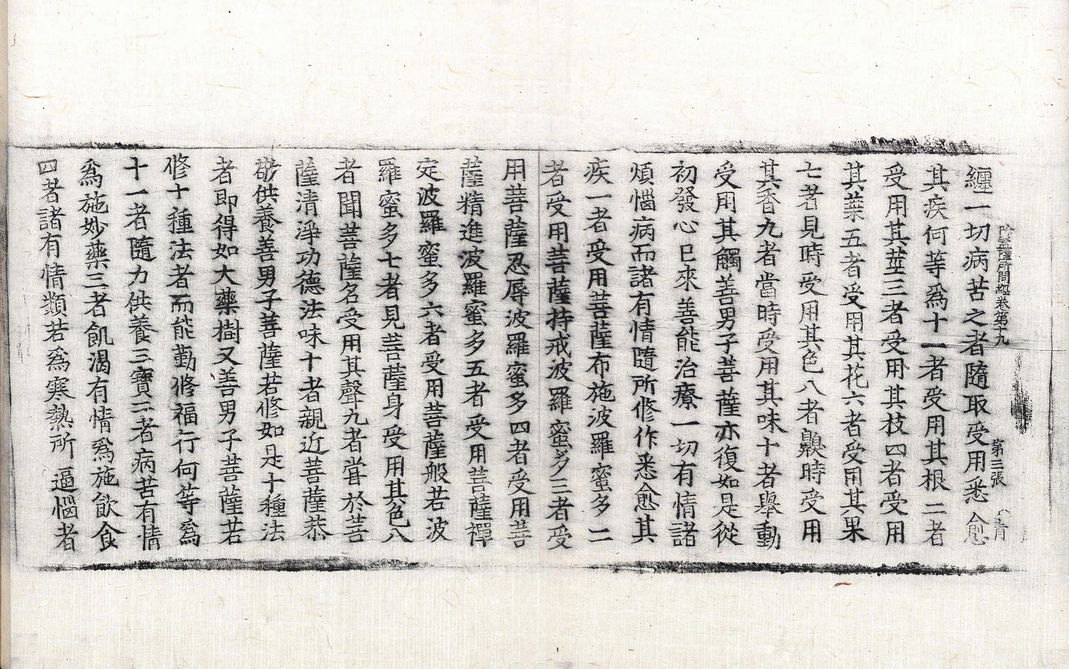 纏一切病苦之者隨取受用悉愈
菩薩所問經卷第十九 第三張
其疾何等爲十一者受用其根二者
受用其莖三者受用其枝四者受用
其葉五者受用其花六者受用其果
七者見時受用其色八者齅時受用
其香九者甞時受用其味十者舉動
受用其觸善男子菩薩亦復如是從
初發心已來善能治療一切有情諸
煩惱病而諸有情隨所修作悉愈其
疾一者受用菩薩布施波羅蜜多二
者受用菩薩持戒波羅蜜多三者受
用菩薩忍辱波羅蜜多四者受用菩
薩精進波羅蜜多五者受用菩薩禪
定波羅蜜多六者受用菩薩般若波
羅蜜多七者見菩薩身受用其色八
者聞菩薩名受用其聲九者甞於菩
薩清淨功德法味十者親近菩薩恭
敬供養善男子菩薩若修如是十種法
者即得如大藥樹又善男子菩薩若
修十種法者而能勤修福行何等爲
十一者隨力供養三寶二者病苦有情
爲施妙藥三者飢渴有情爲施飲食
四者諸有情類若爲寒熱所逼惱者